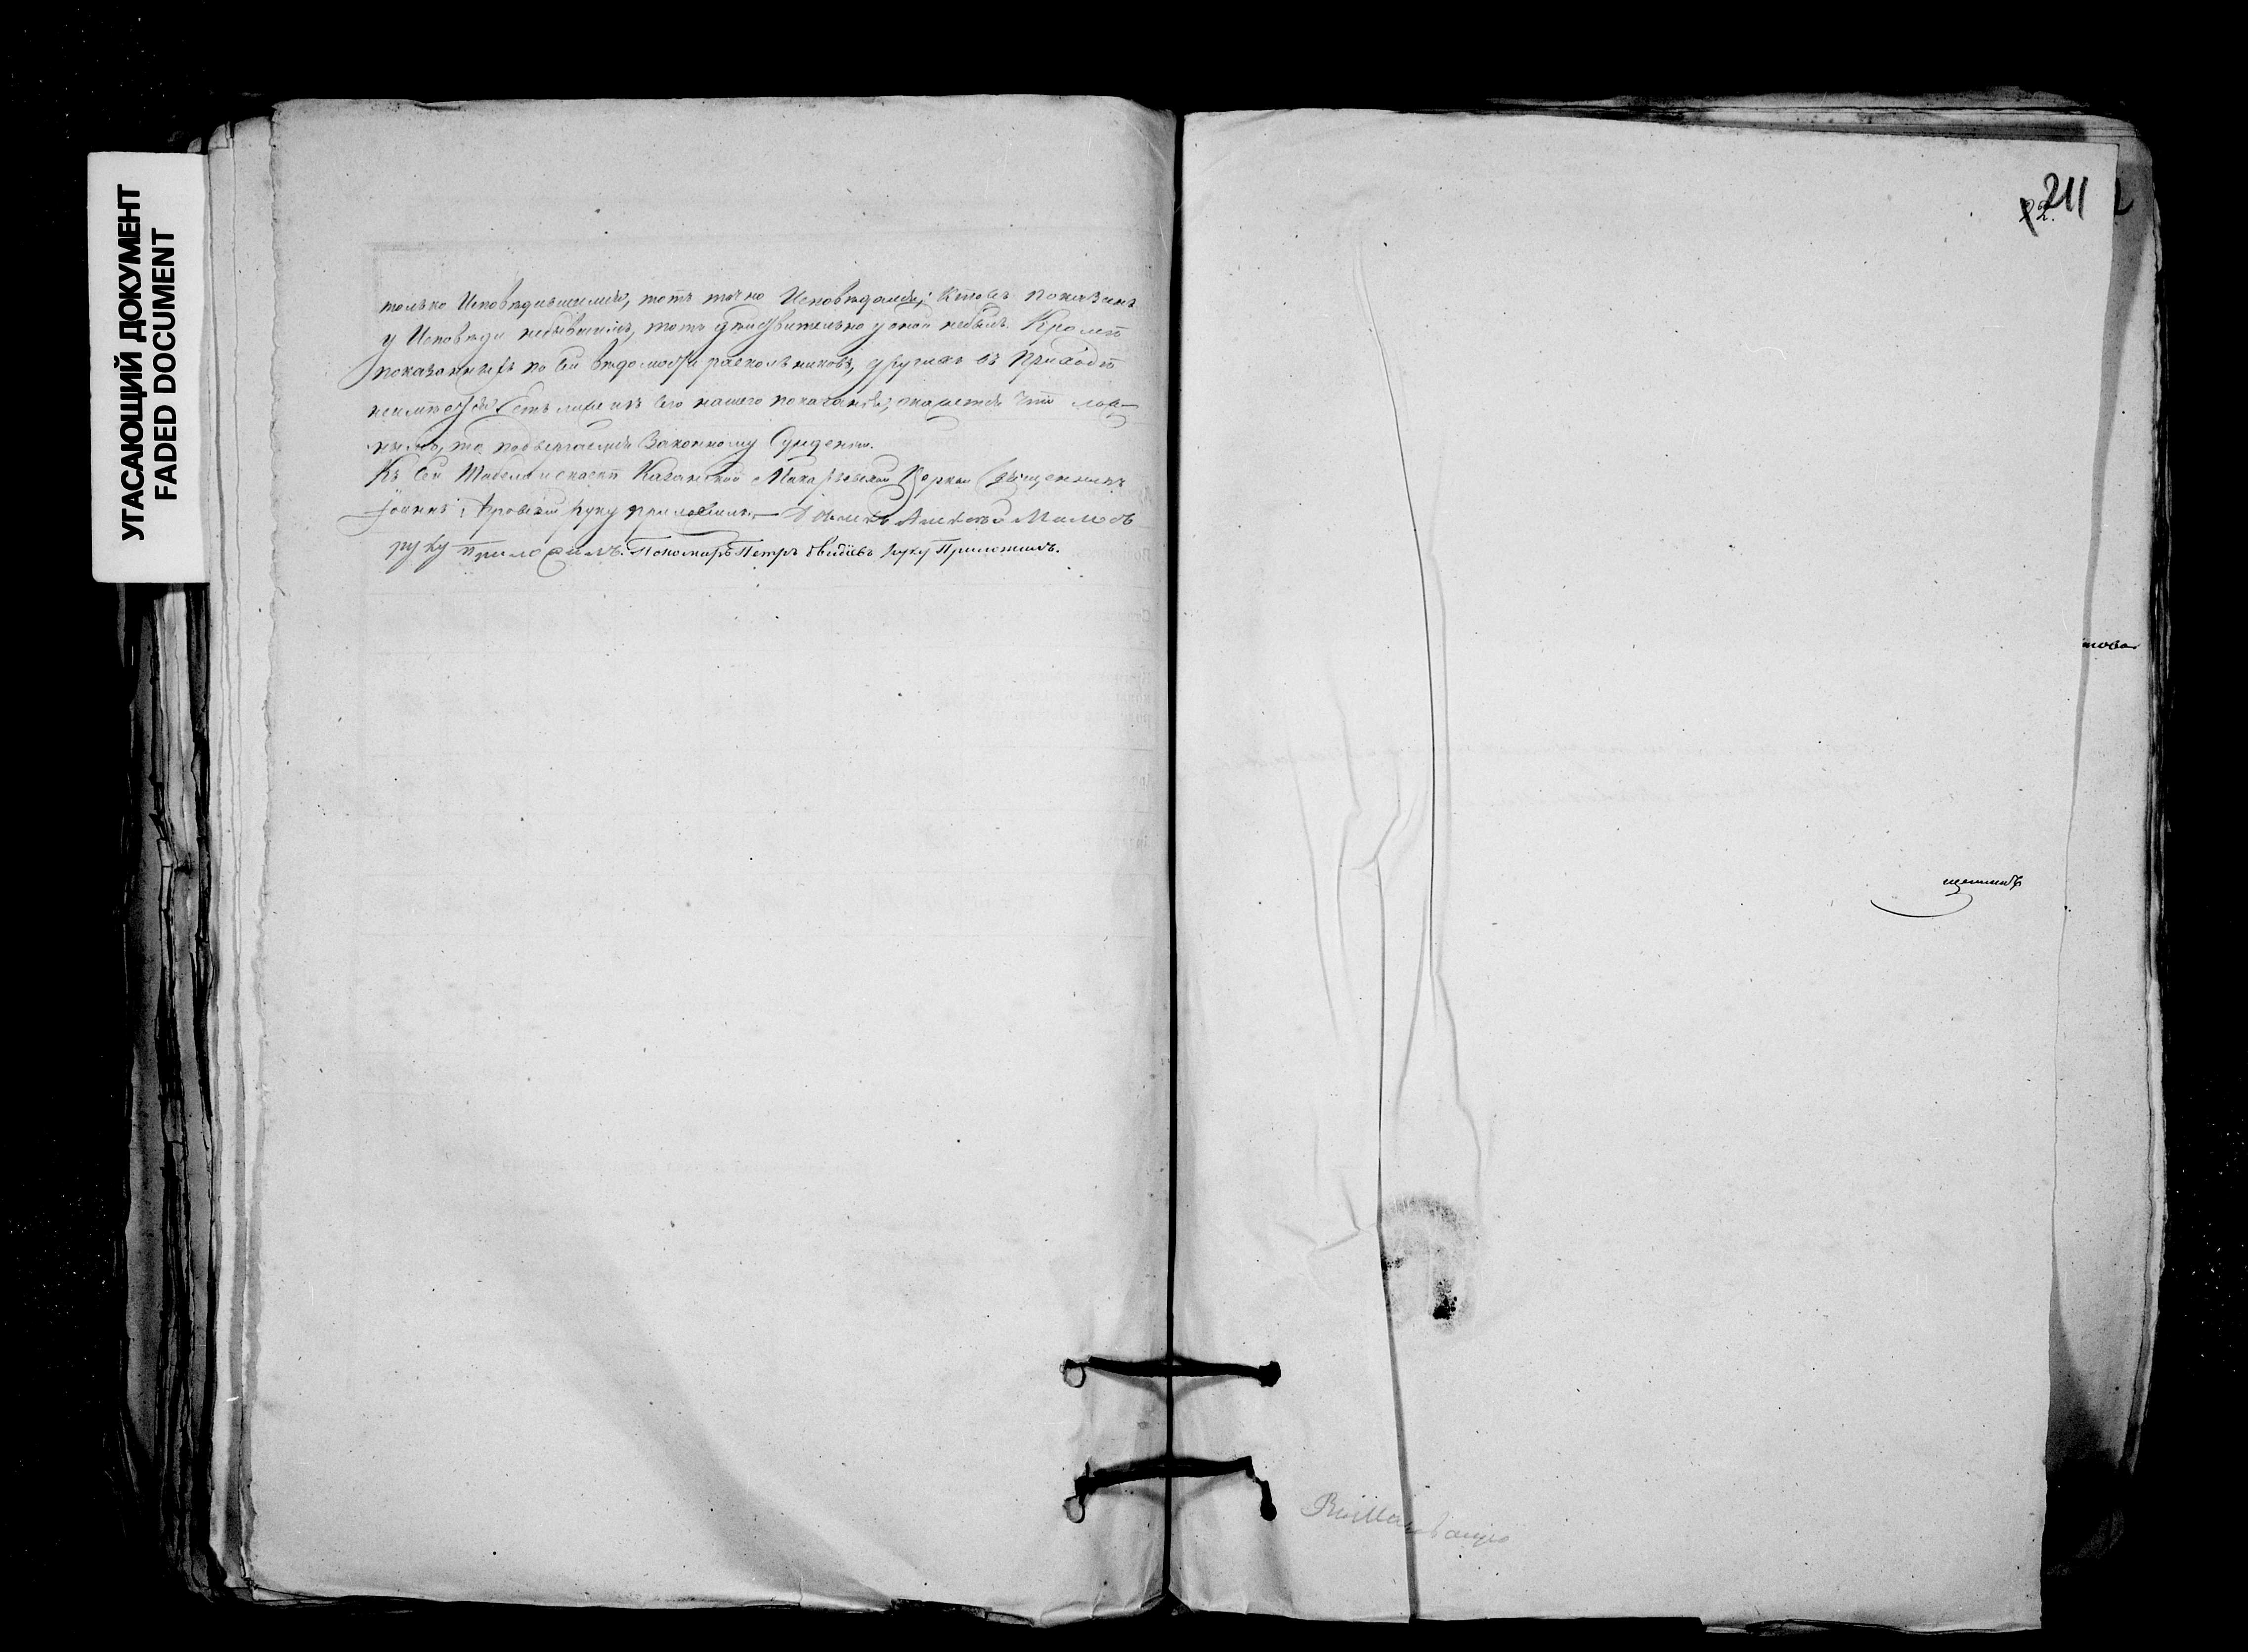 УГАСАЮЩИЙ ДОКУМЕНТ
FADED DOCUMENT
только Исповѣдавшимся, тотъ точно Исповѣдался; Кто въ показанъ
у Исповѣди небывшимъ, тотъ дѣйствительно у оной небылъ. Кромѣ
показанныхъ по сей вѣдомости раскольниковъ, другихъ въ Приходѣ
неимѣется. Естьли же изъ сего нашего показанія, окажется что лож-
ныхъ, то подвергаемся Законному Сужденію.
Къ сей Казанской Макарьевской Церкви Священникъ
Іоаннъ руку приложилъ. — Алексѣй
руку приложилъ. Пономарь Петръ руку Приложилъ.
211
22.
щенникъ